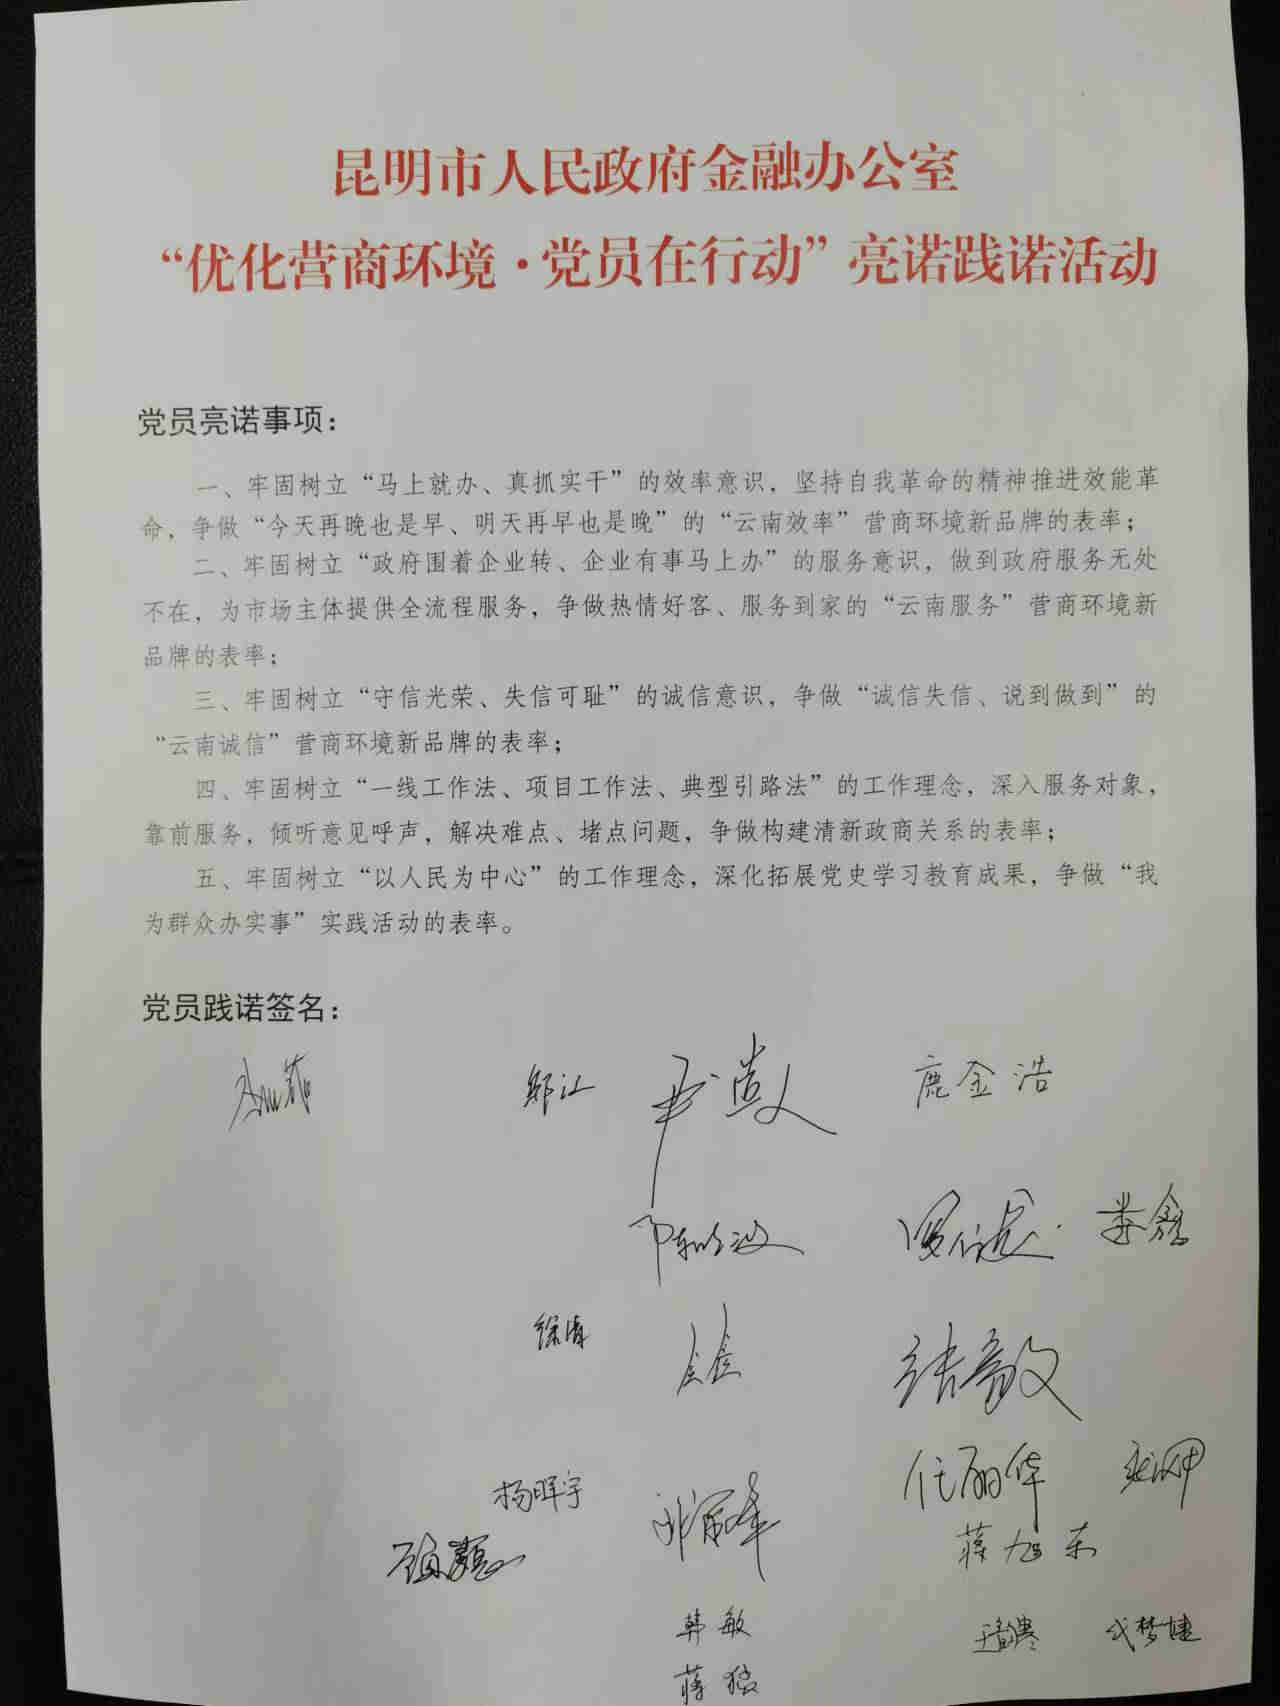 昆明市人民政府金融办公室
“优化营商环境·党员在行动”亮诺践诺活动
党员亮诺事项：
一、牢固树立“马上就办、真抓实干”的效率意识，坚持自我革命的精神推进效能革
命，争做“今天再晚也是早、明天再早也是晚”的“云南效率”营商环境新品牌的表率；
二、牢固树立“政府围着企业转、企业有事马上办”的服务意识，做到政府服务无处
不在，为市场主体提供全流程服务，争做热情好客、服务到家的“云南服务”营商环境新
品牌的表率；
三、牢固树立“守信光荣、失信可耻”的诚信意识，争做“诚信失信、说到做到”的
“云南诚信”营商环境新品牌的表率；
四、牢固树立“一线工作法、项目工作法、典型引路法”的工作理念，深入服务对象，
靠前服务，倾听意见呼声，解决难点、堵点问题，争做构建清新政商关系的表率；
五、牢固树立“以人民为中心”的工作理念，深化拓展党史学习教育成果，争做“我
为群众办实事”实践活动的表率。
党员践诺签名：
鹿金浩
娄鑫
徐倩
杨晖宇
任丽华
蒋旭东
韩敏